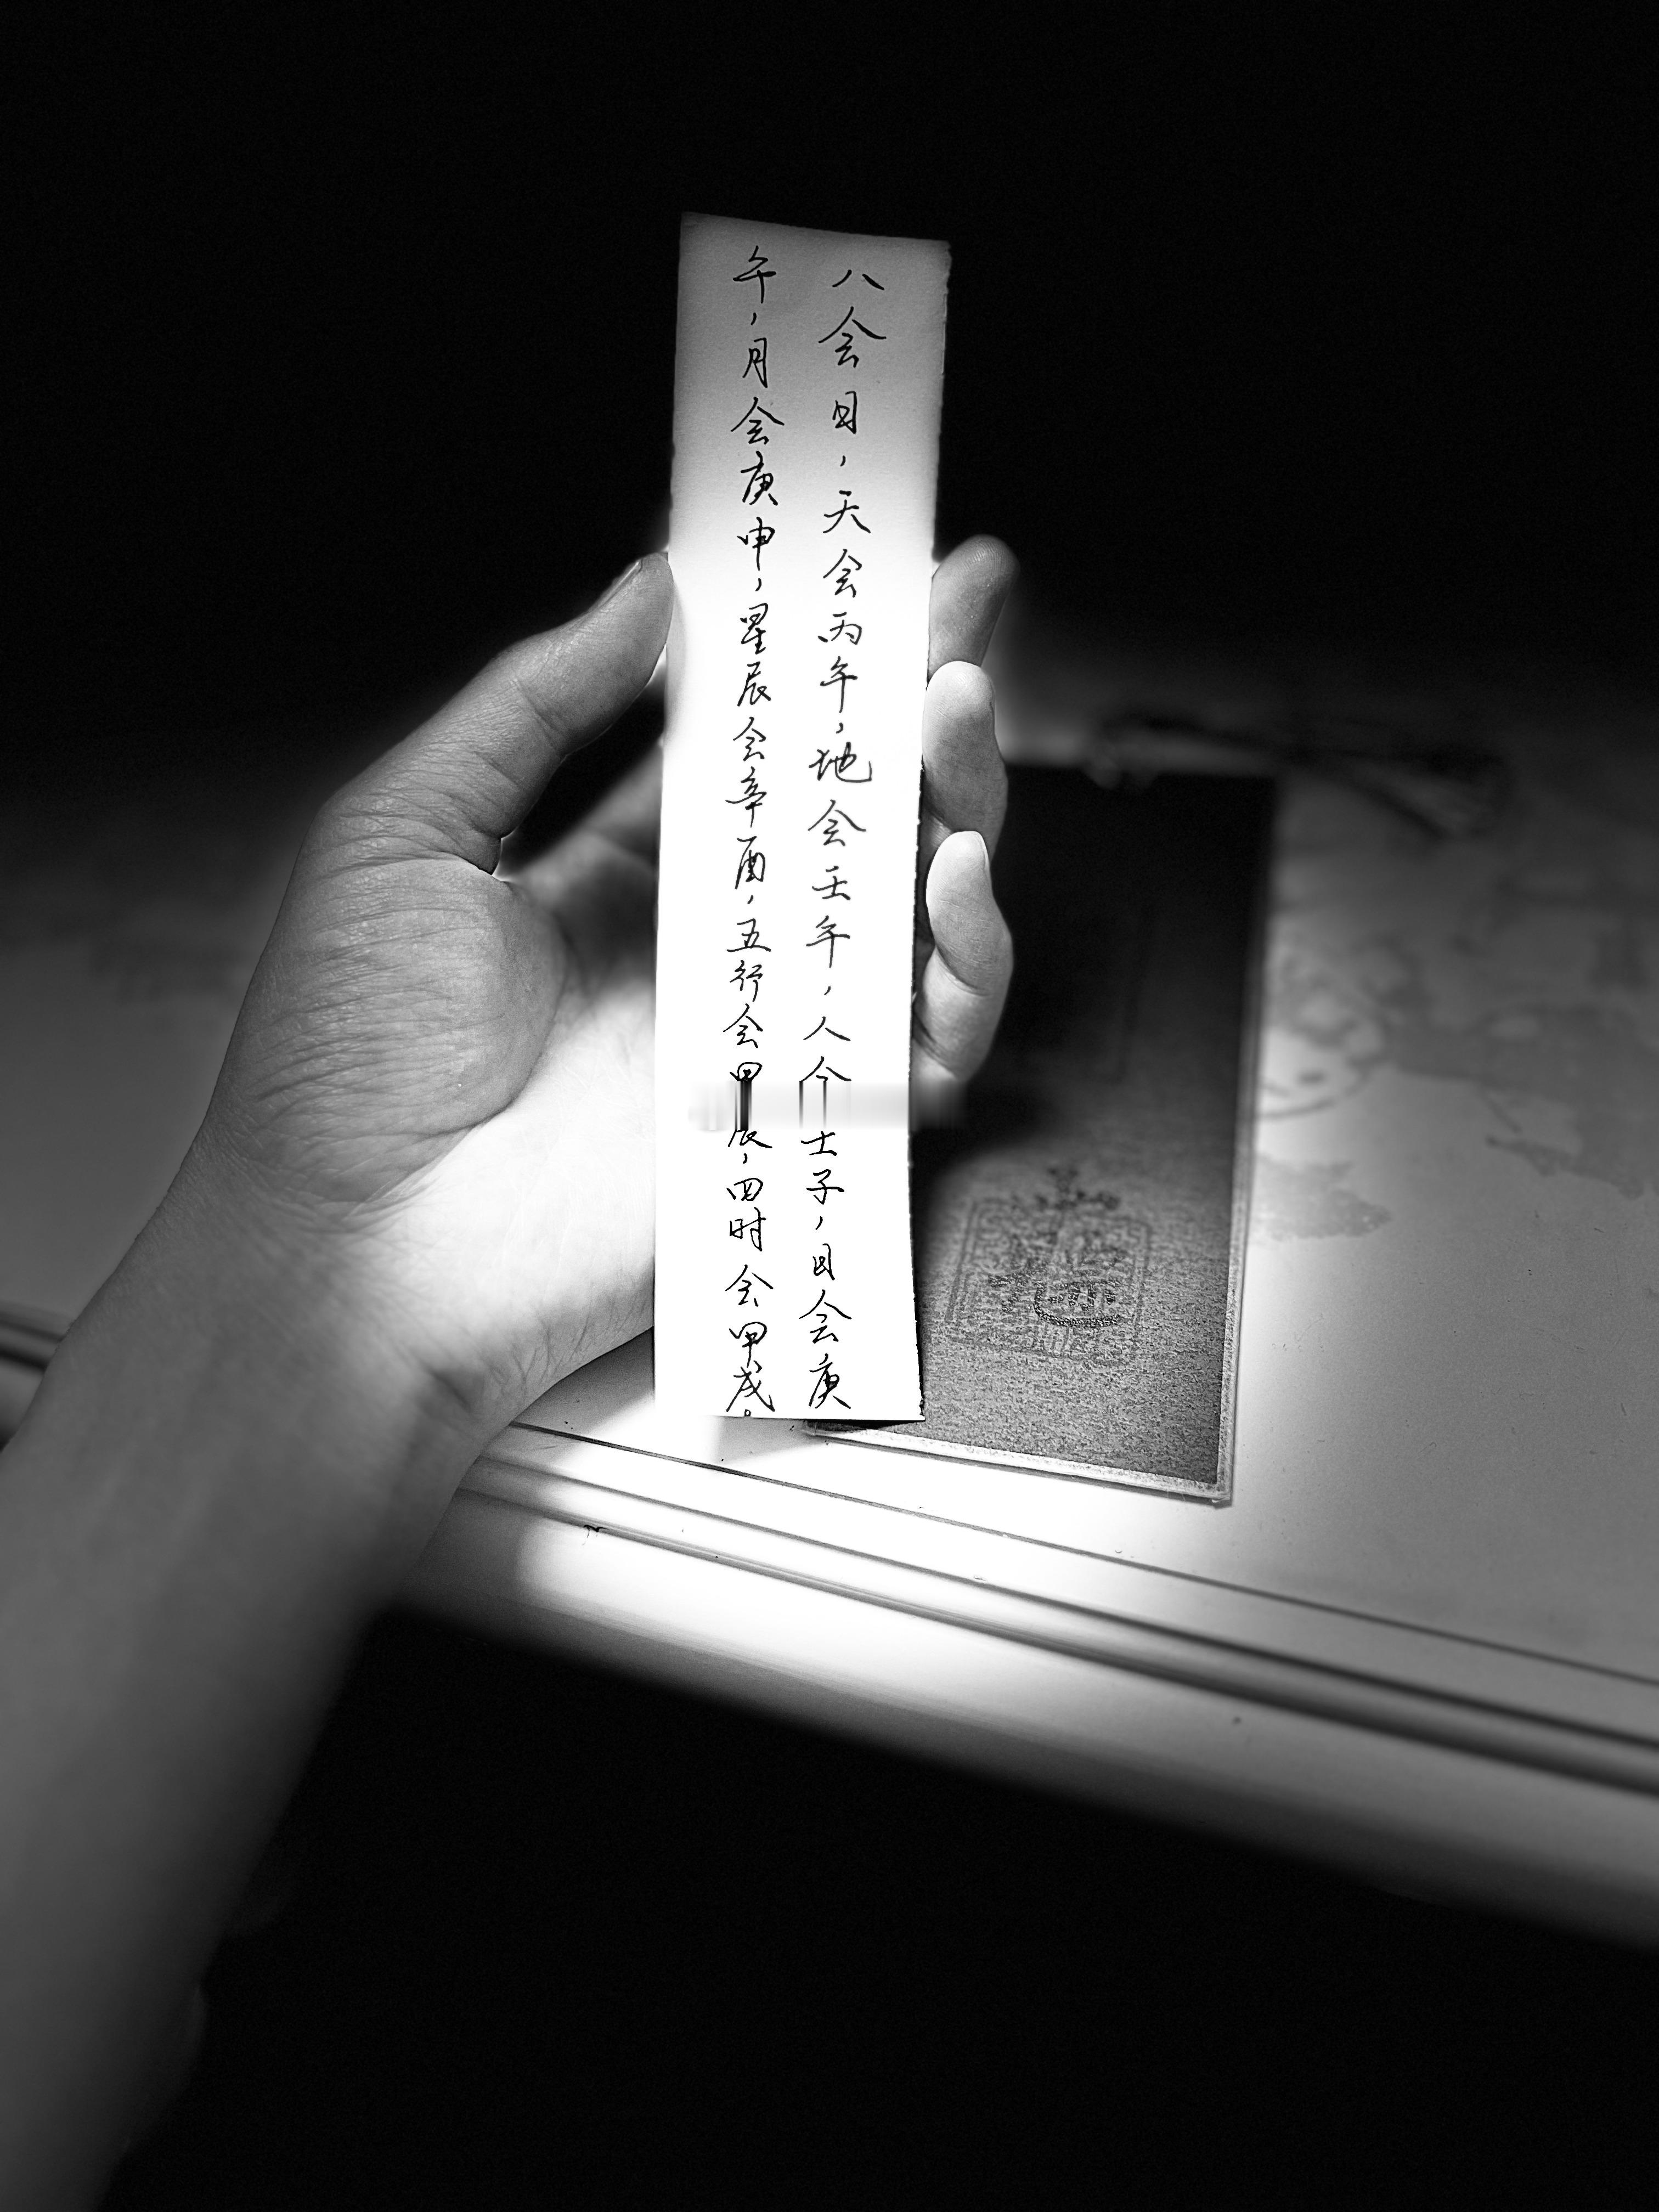 八会日，天会丙午，地会壬午，人会壬子，日会庚
午，月会庚申，星辰会辛酉，五行会甲辰，四时会甲戌。